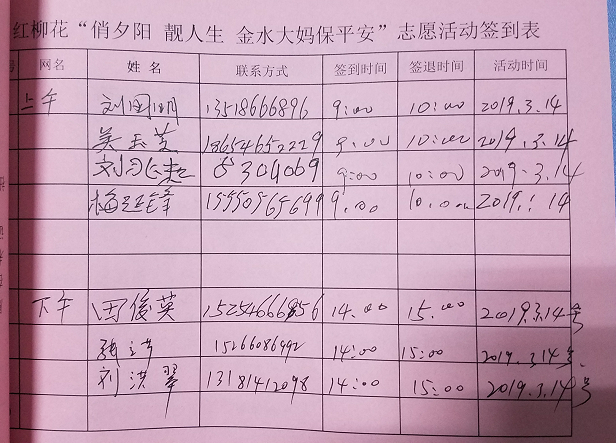 红柳花“俏夕阳 靓人生 金水大妈保平安”志愿活动签到表
网名 姓名 联系方式 签到时间 签退时间 活动时间
上午 刘国明 13518666896 9:00 10:00 2019.3.14
吴玉芝 18654652229 9:00 10:00 2019.3.14
8304069 9:00 10:00 2019.3.14
梅延锋 15550565699 9:00 10:00 2019.3.14
下午 田俊英 15254666856 14:00 15:00 2019.3.14号
15266086992 14:00 15:00 2019.3.14号
刘洪翠 13181412098 14:00 15:00 2019.3.14号